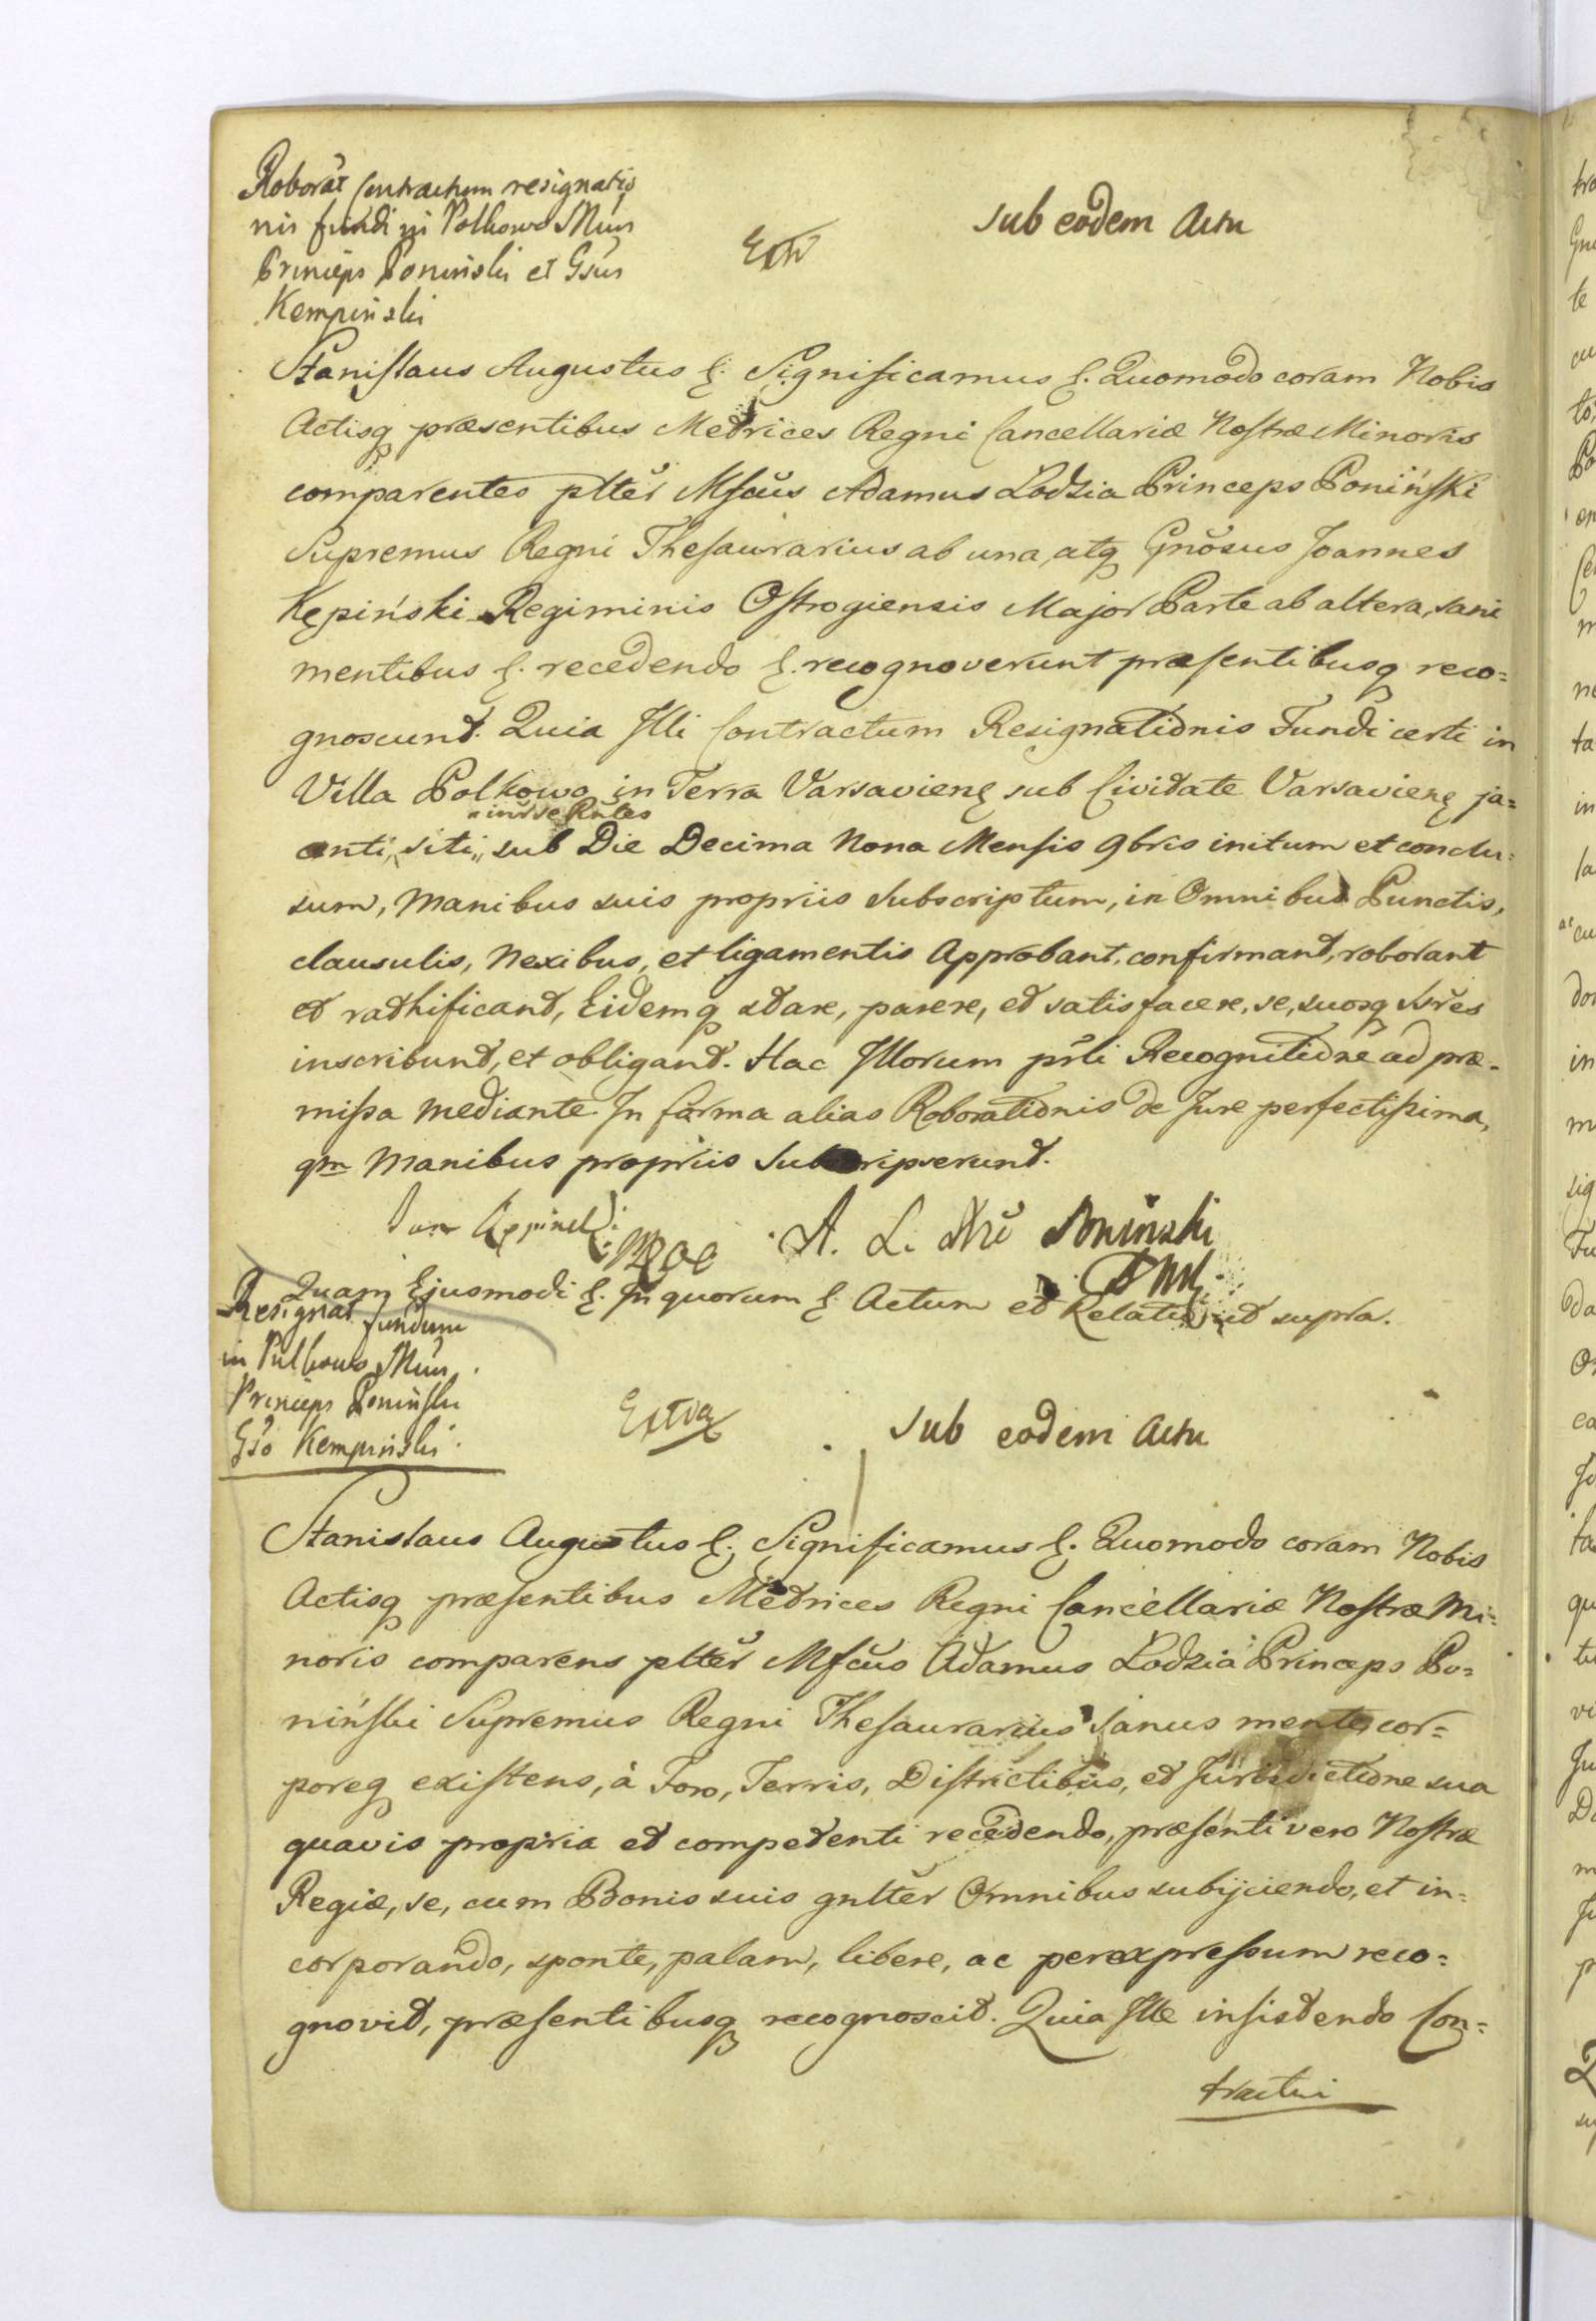 Roborat Contractum resignatio
nis fundi in Polkowo Mcus
Princeps Poniński et Gsus
Kempinski
sub eodem Actu
Stanislaus Augustus &. Significamus &. Quomodo coram Nobis
Actisq præsentibus Metrices Regni Cancellariæ Nostræ Minoris
comparentes plter Mfcus Adamus Lodzia Princeps Poniński
Supremus Regni Thesaurarius ab una, atq Gnosus Joannes
Kępiński Regiminis Ostrogiensis Major Parte ab altera, sani
mentibus &. recedendo &. recognoverunt præsentibusq reco=
gnoscunt. Quia Illi Contractum Resignationis Fundi certi in
Villa Polkowo in Terra Varsaviens sub Civitate Varsaviens ja=
centi, siti, sub Die Decima Nona Mensis 9bris initum et conclu=
sum, Manibus suis propriis Subscriptum, in Omnibus Punctis,
clausulis, Nexibus, et ligamentis Approbant, confirmant, roborant
et rathificant, Eidemq stare, parere, et satisfacere, se, suosq Ssres
inscribunt, et obligant. Hac Illorum pñti Recognitione ad præ=
missa mediante. In forma alias Roborationis de Jure perfectissima,
qm Manibus propriis Subscripserunt.
A. L. Poniński
Quam Ejusmodi &. In quorum &. Actum et Relatio ut supra.
Resignat fundum
in Pulkowo Mcus
Princeps Poniński
Gso Kempinski
Extra
sub eodem Actu
Stanislaus Augustus &. Significamus &. Quomodo coram Nobis
Actisq præsentibus Metrices Regni Cancellariæ Nostræ Mi=
noris comparens plter Mfcus Adamus Lodzia Princeps Po=
niński Supremus Regni Thesaurarius Sanus mente, cor=
poreq existens, à Foro, Terris, Districtibus, et Jurisdictione sua
quavis propria et competenti recedendo, præsenti vero Nostræ
Regiæ, se, cum Bonis suis gnlter Omnibus subijciendo, et in=
corporando, sponte, palam, libere, ac per expressum reco=
gnovit, præsentibusq recognoscit. Quia Ille insistendo Con=
tractui